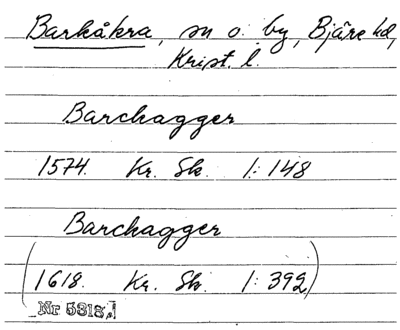 Barkåkra, sn o. by, Bjäre hd,
Krist. l.
Barchagger
1574. Kr. Sk. 1: 148
Barchagger
(1618. Kr. Sk. 1: 392)
Nr 5313,